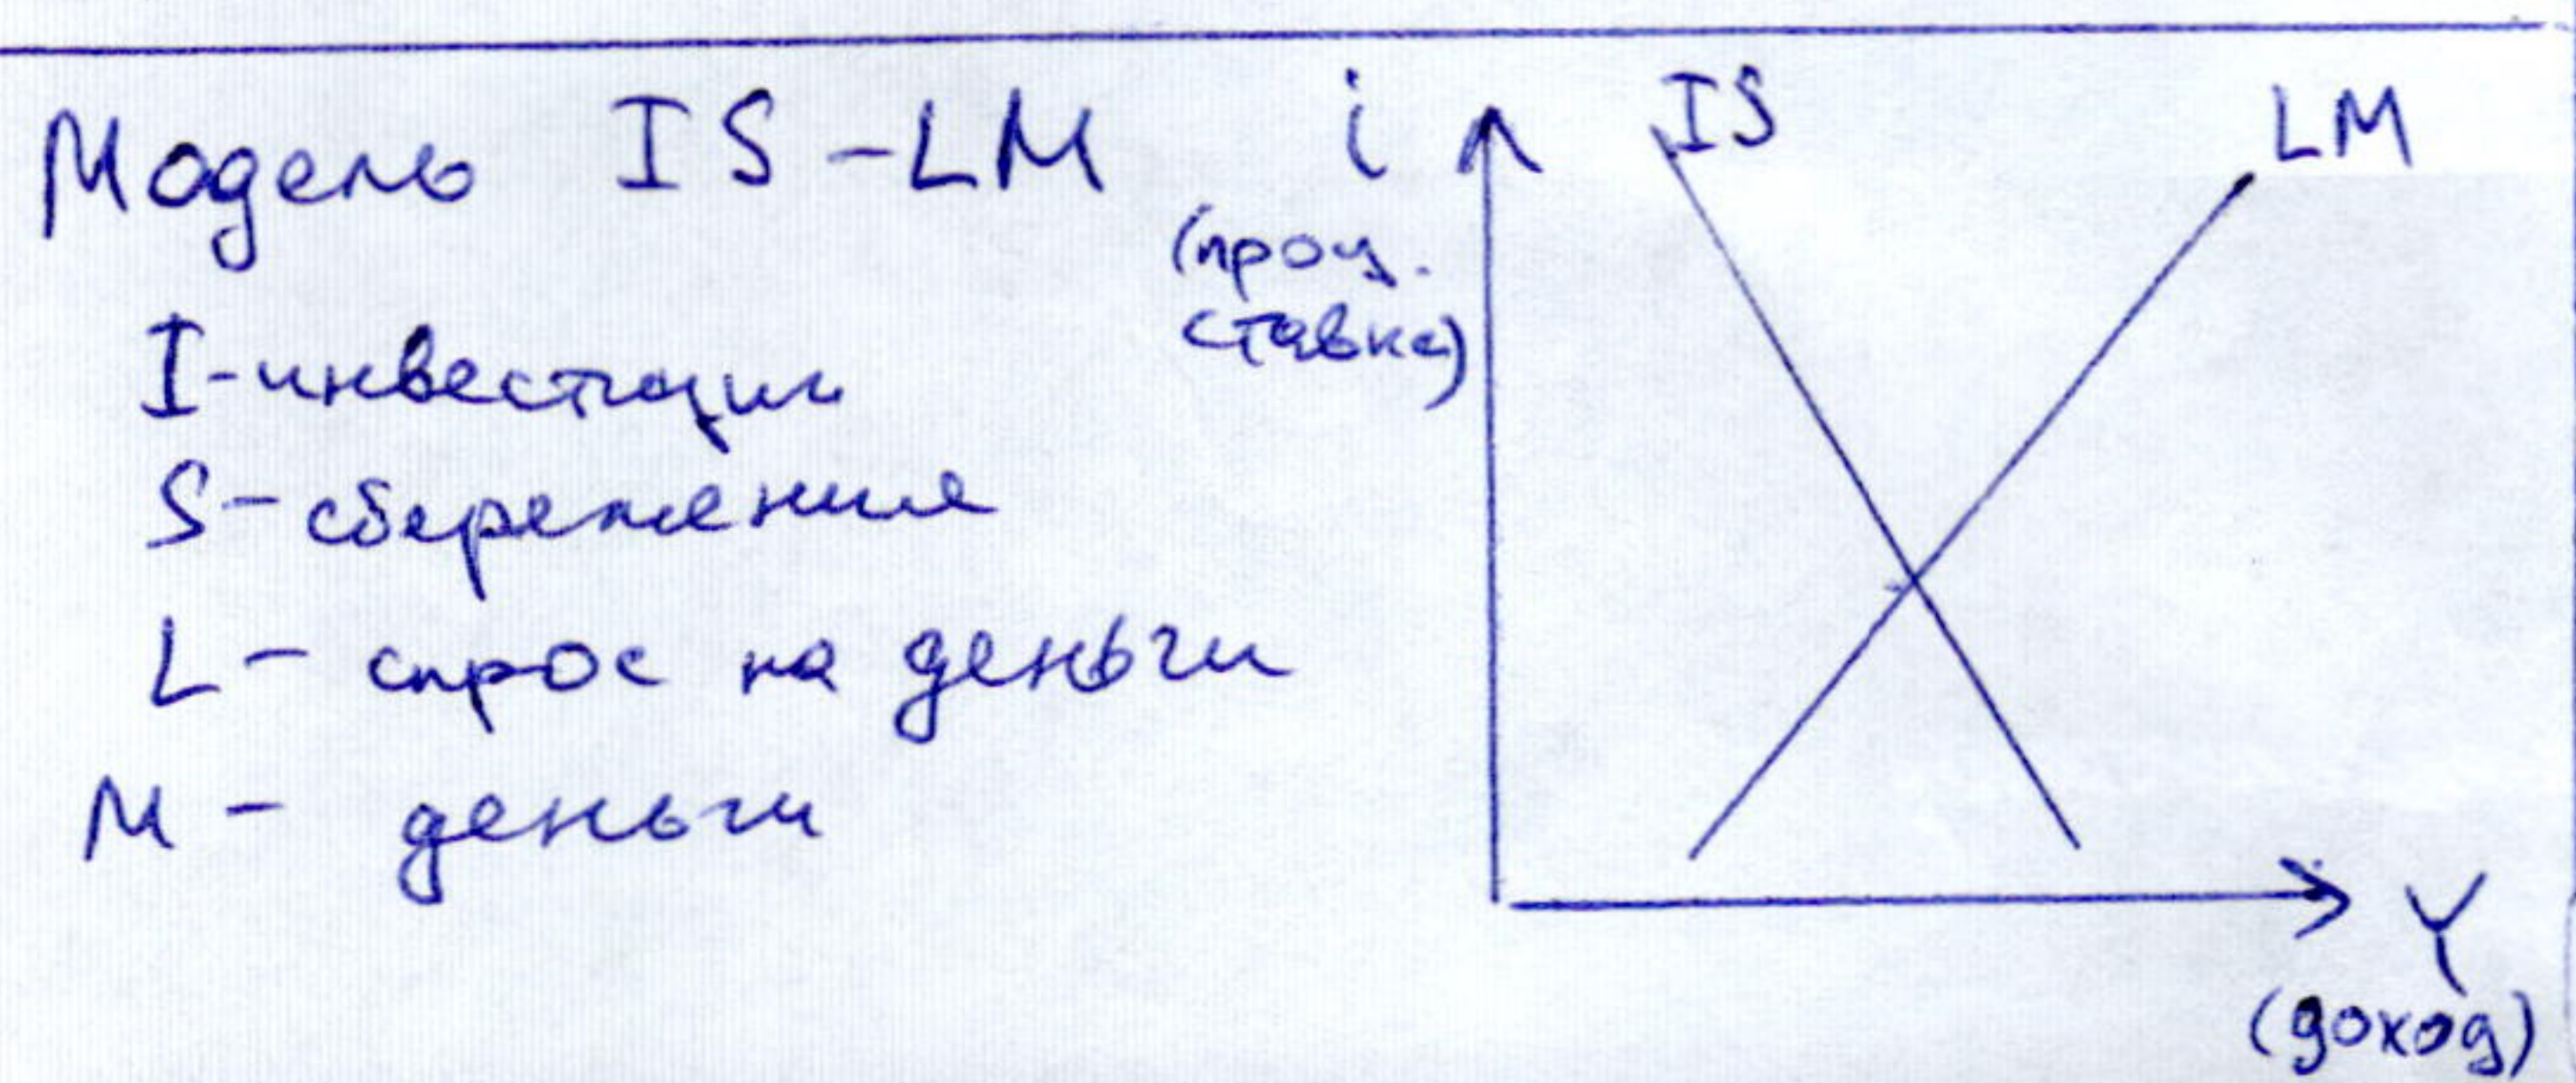 Модель IS-LM
I-инвестиции
S-сбережения
L- спрос на деньги
M- деньги
i
(проц.
ставка)
IS
LM
Y
(доход)